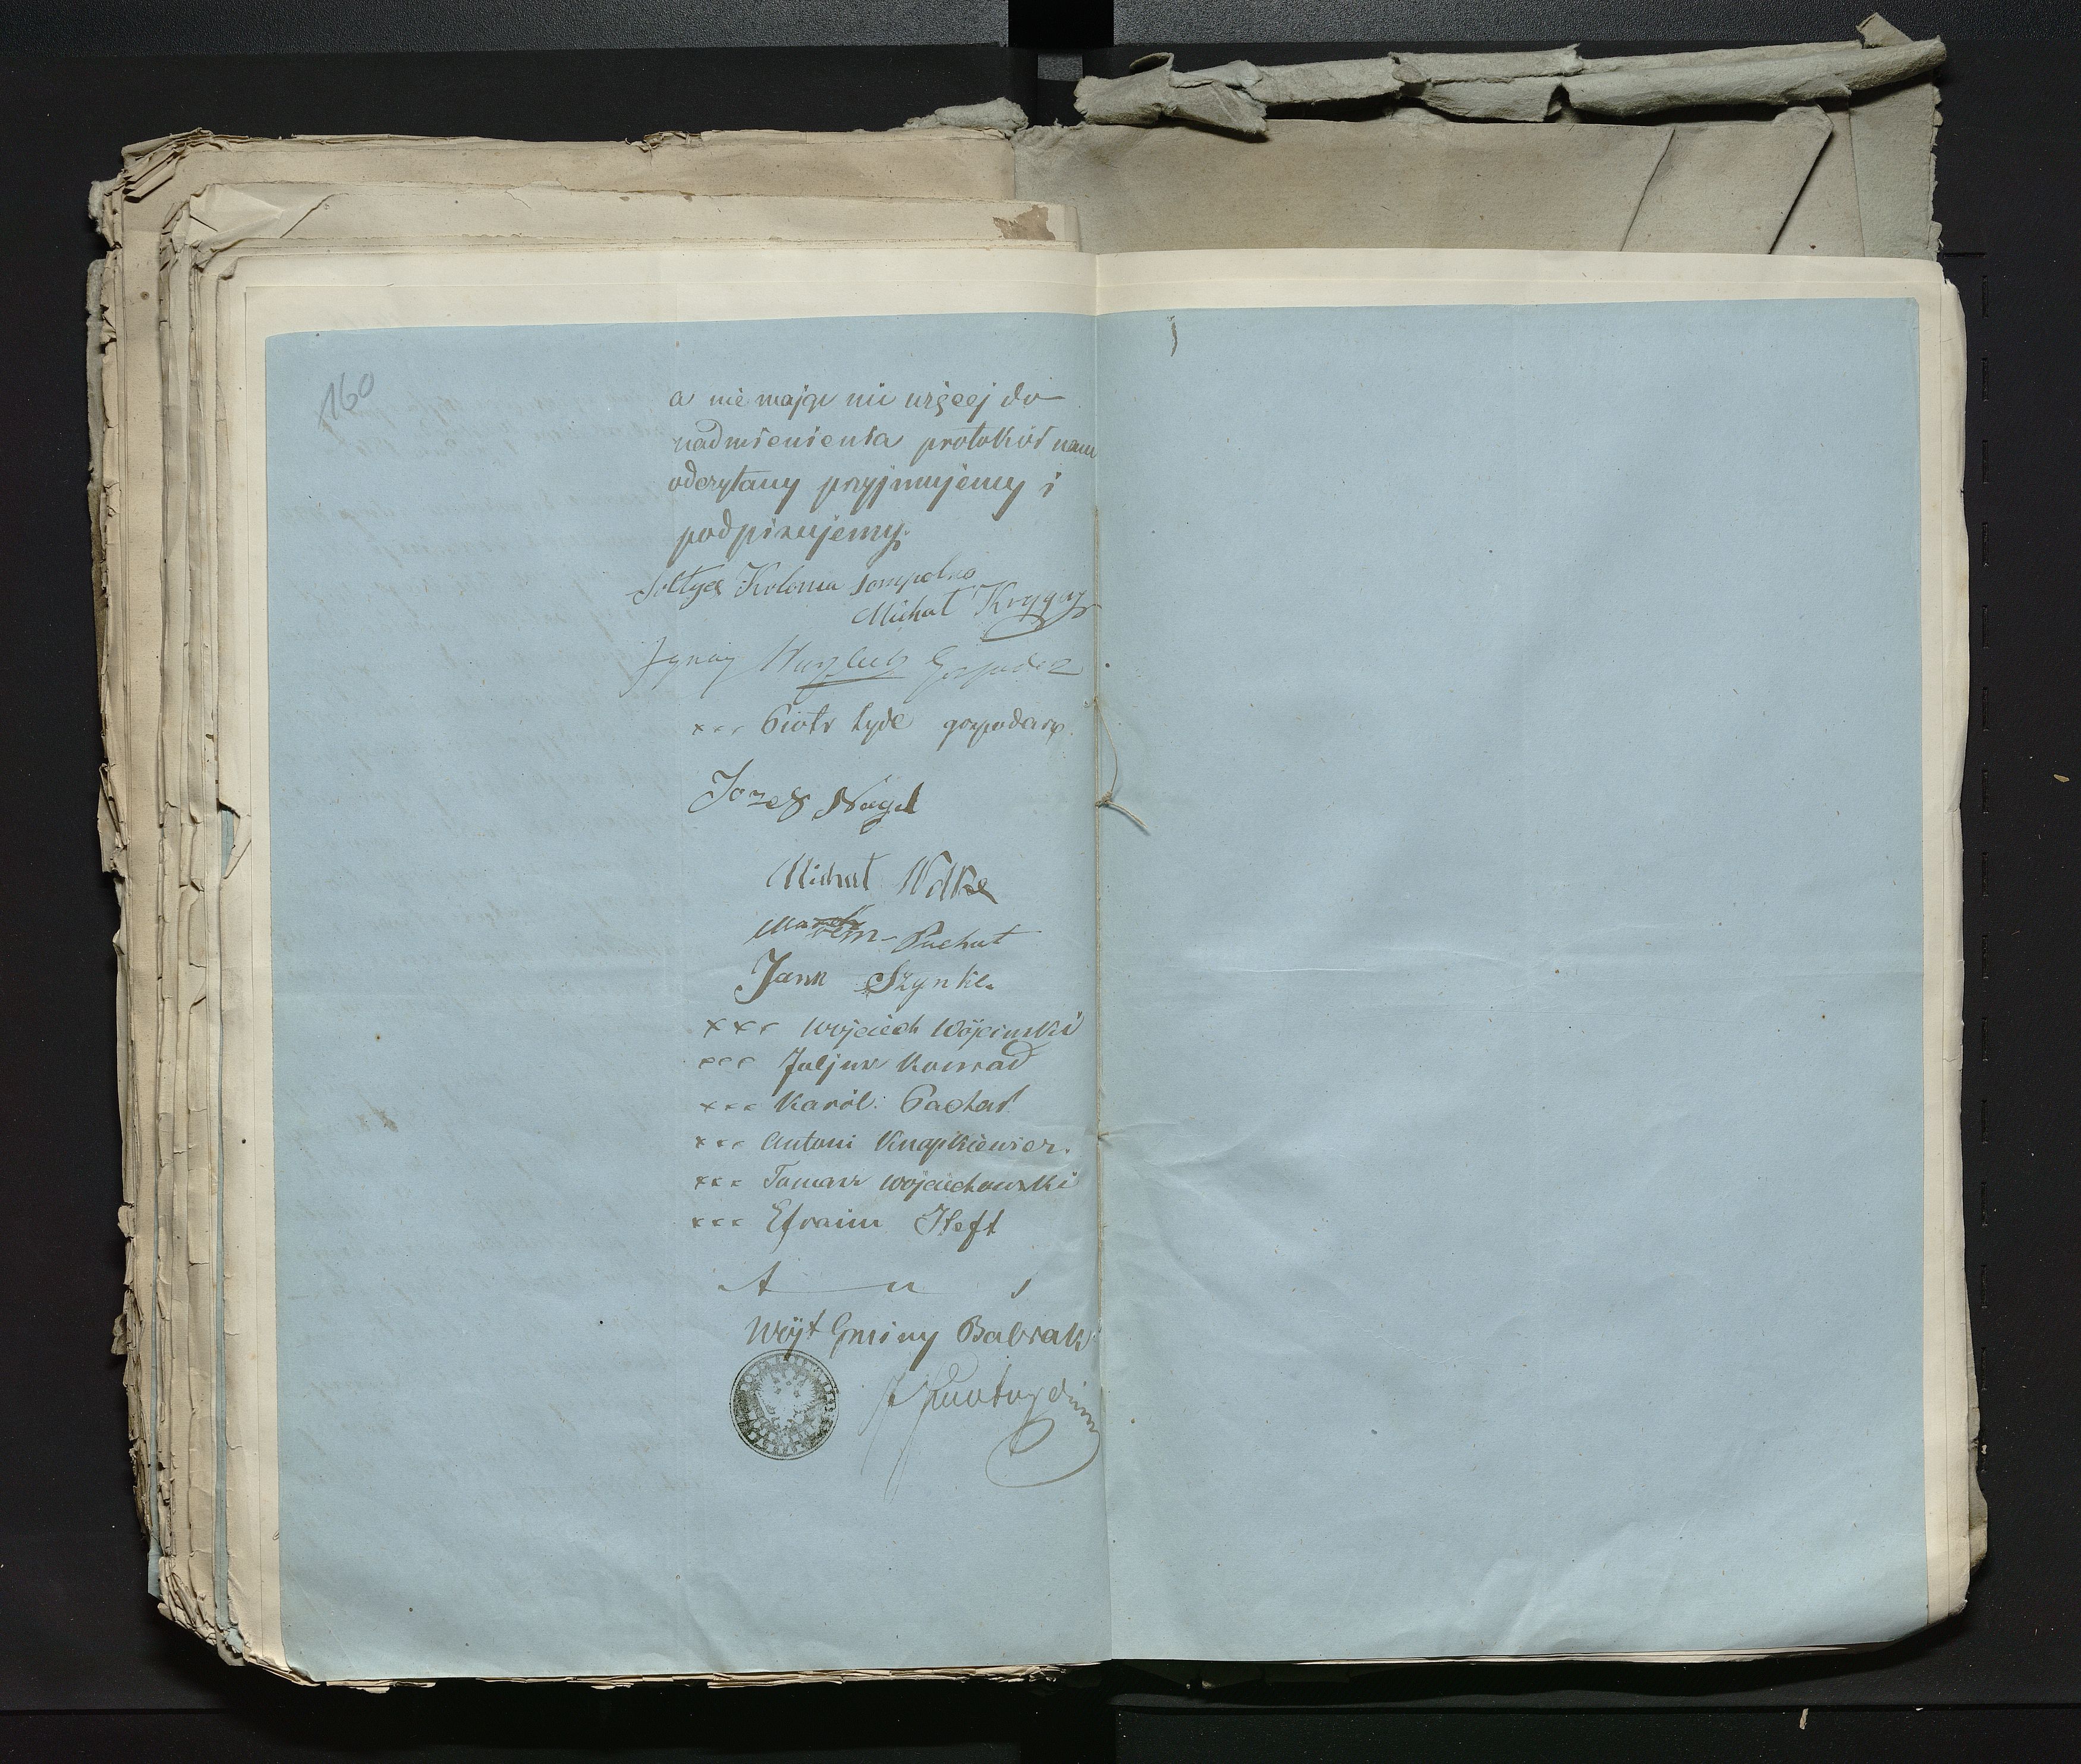 160
a nie mając nic więcej do
nadmienienia protokół nam
odczytany przyjmujemy i
podpisujemy.
Sołtys Kolonia Sompolno
Michał Krygier
Ignacy Gospodarz
××× Piotr Lyde gospodarz
Jozef Nagel
Michał Wolke
Marcin Puchat
Jann Szynke.
××× Wojciech Wójcinski
××× Juljus Konrad
××× Karól Pachat
××× Antoni Knapkiewicz.
××× Tomasz Wojciechowski
××× Efraim Heft
Wójt Gminy Babiak